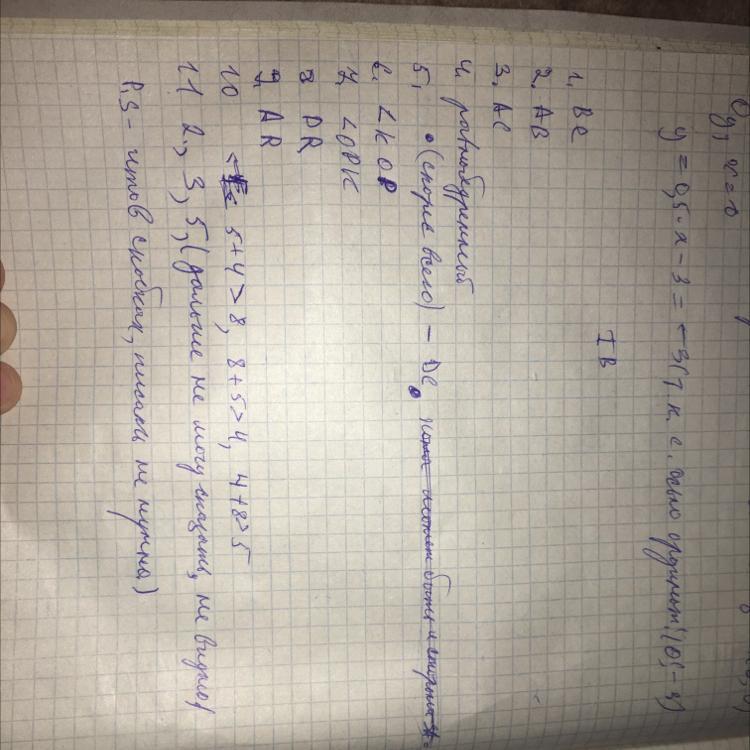 Oy, x=0
y = 0,5·x - 3 = -3 (т.к. с. осью ординат) (0; -3)
I B
1. BC
2. AB
3. AC
4. равнобедренный
5. (скорее всего) - DC
6. ∠KOP
7. ∠OPK
8 PR
9. AR
10 5+4>8, 8+5>4, 4+8>5
11 2, 3, 5, (дальше не могу сказать, не видно)
P.S - что в скобках, писать не нужно)